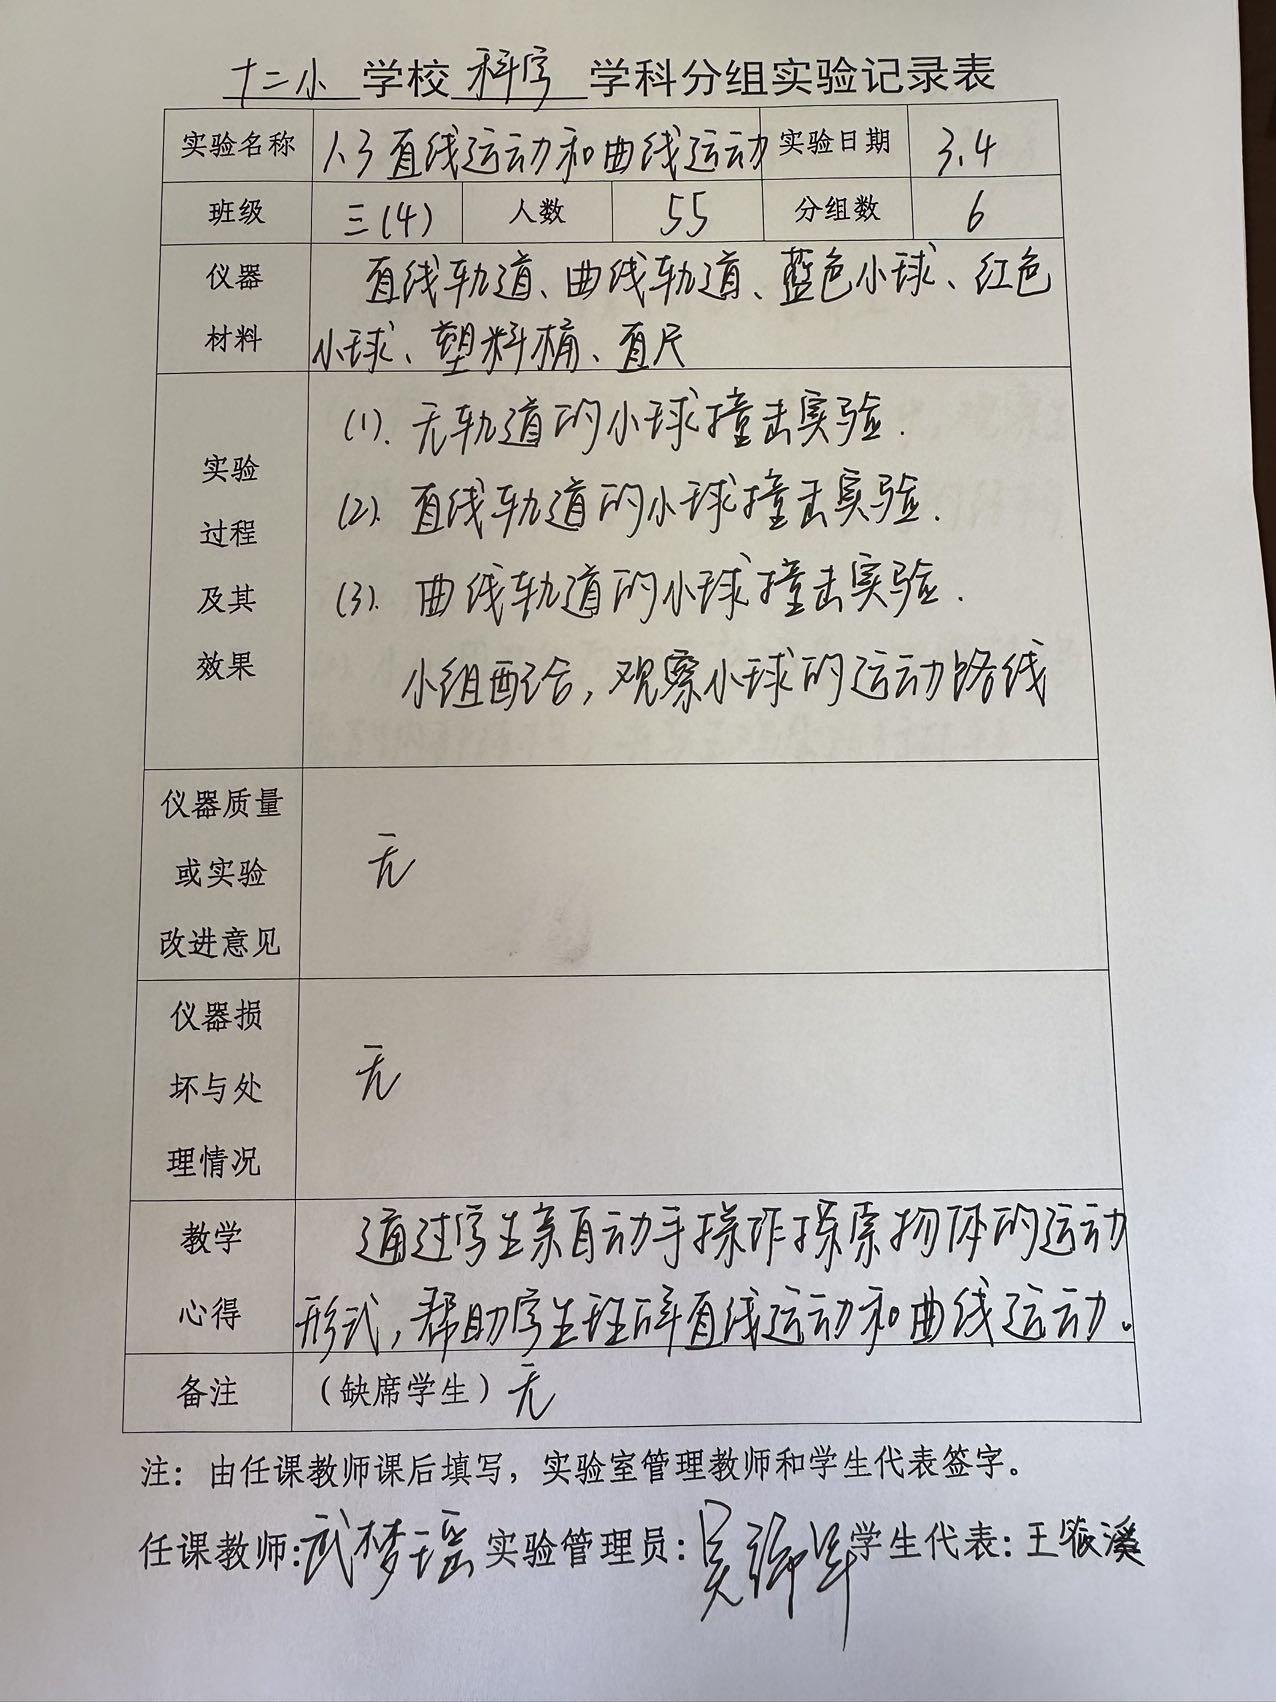 十二小 学校 科学 学科分组实验记录表
实验名称 1.3直线运动和曲线运动 实验日期 3.4
班级 三(4) 人数 55 分组数 6
仪器
材料
直线轨道、曲线轨道、蓝色小球、红色
小球、塑料桶、直尺
实验
过程
及其
效果
(1). 无轨道的小球撞击实验.
(2). 直线轨道的小球撞击实验.
(3). 曲线轨道的小球撞击实验.
小组配合,观察小球的运动路线
仪器质量
或实验
改进意见
无
仪器损
坏与处
理情况
无
教学
心得
通过学生亲自动手操作探索物体的运动
形式,帮助学生理解直线运动和曲线运动。
备注 (缺席学生)无
注:由任课教师课后填写,实验室管理教师和学生代表签字。
任课教师:武梦瑶 实验管理员:吴 学生代表:王溪